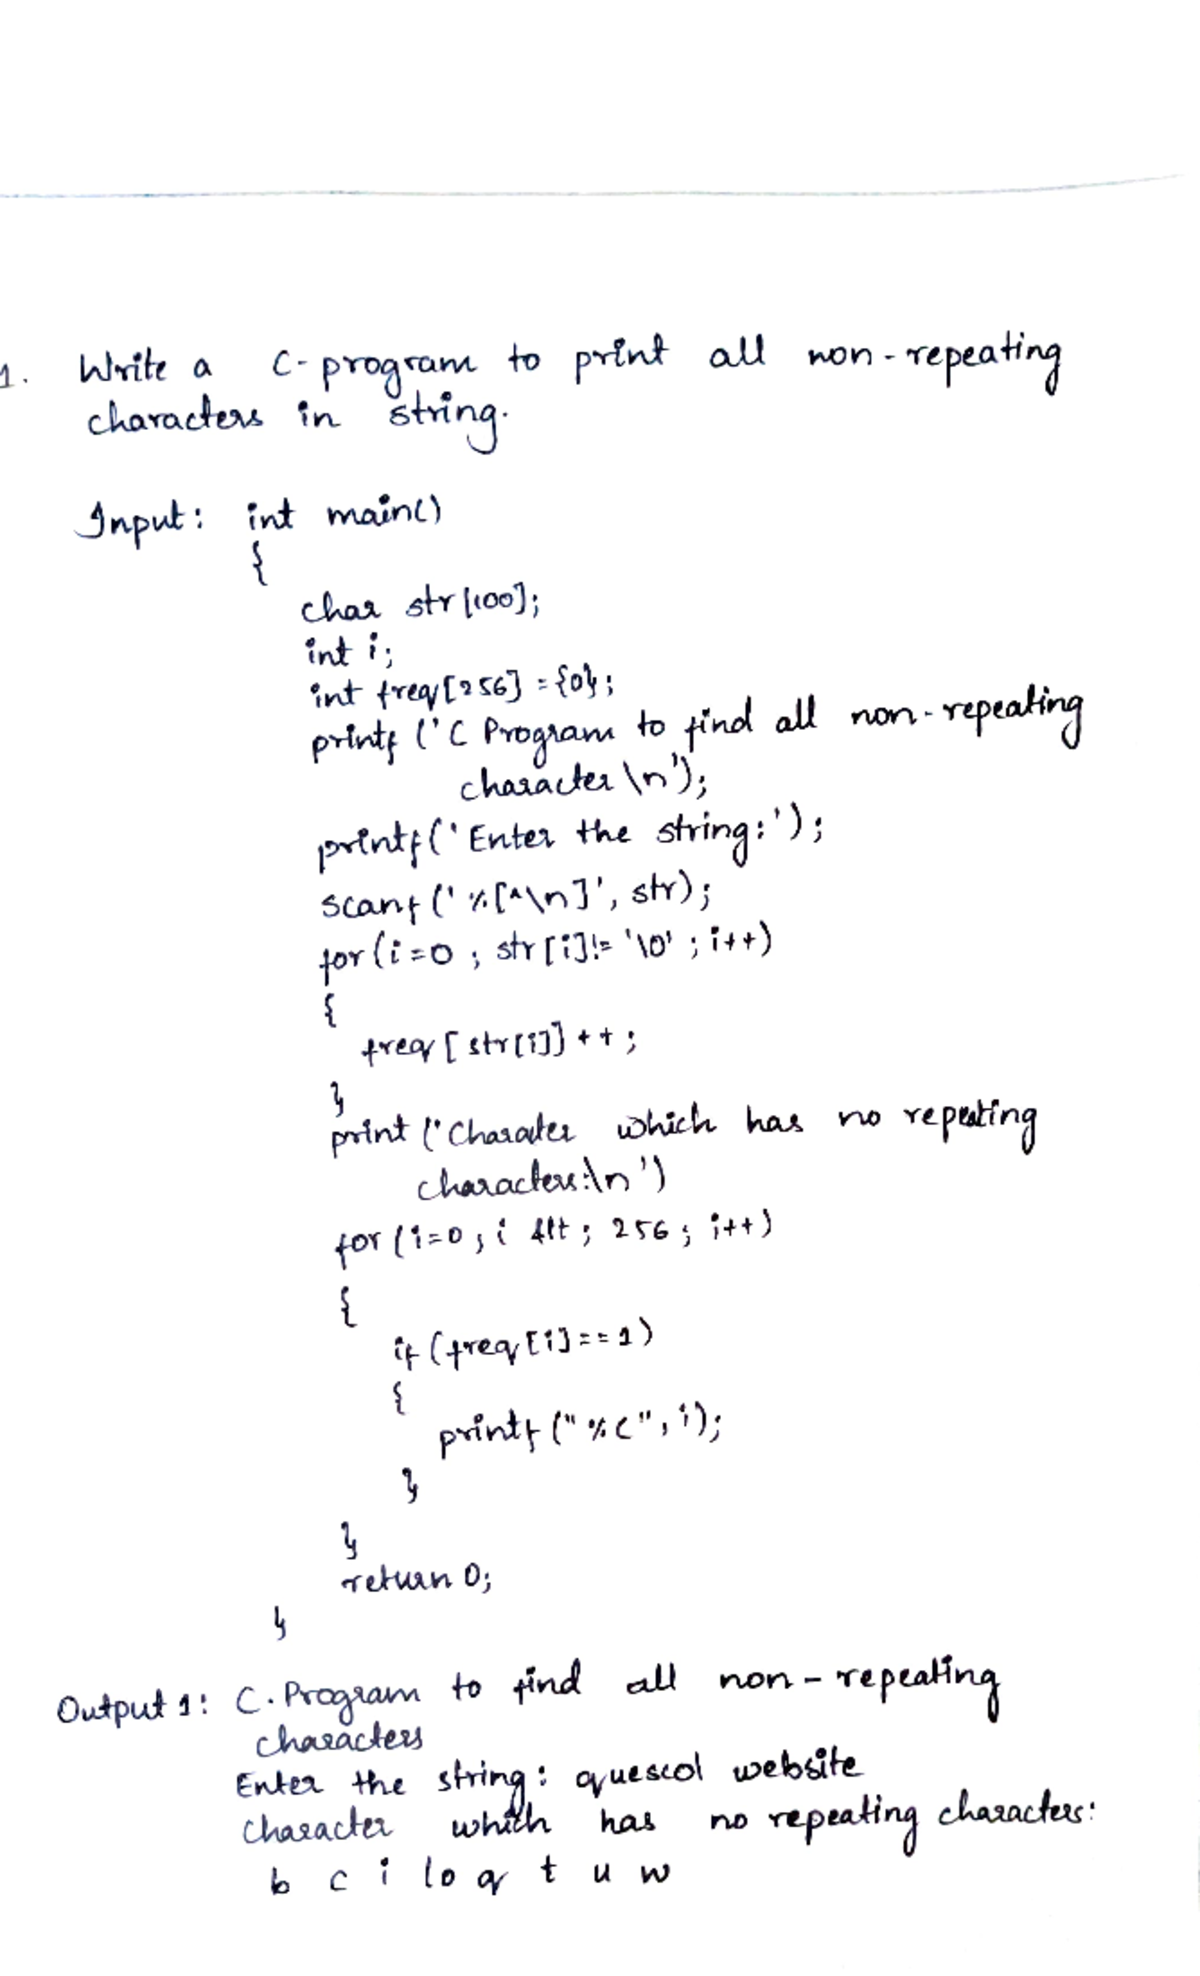 1. Write a C-program to print all non-repeating
characters in string.
Input: int main()
{
char str[100];
int i;
int freq[256] = {0};
printf ('C Program to find all non-repeating
character \n');
printf('Enter the string:');
scanf ('%[^\n]', str);
for (i=0 ; str[i]!= '\0' ; i++)
{
freq [ str[i]] ++ ;
}
print ('Charater which has no repeating
characters:\n')
for (i=0 ; i &lt ; 256 ; i++)
{
if (freq[i]==1)
{
printf ("%c", i);
}
}
return 0;
}
Output 1: C.Program to find all non-repeating
characters
Enter the string: quescol website
Character which has no repeating characters:
b c i lo q t u w